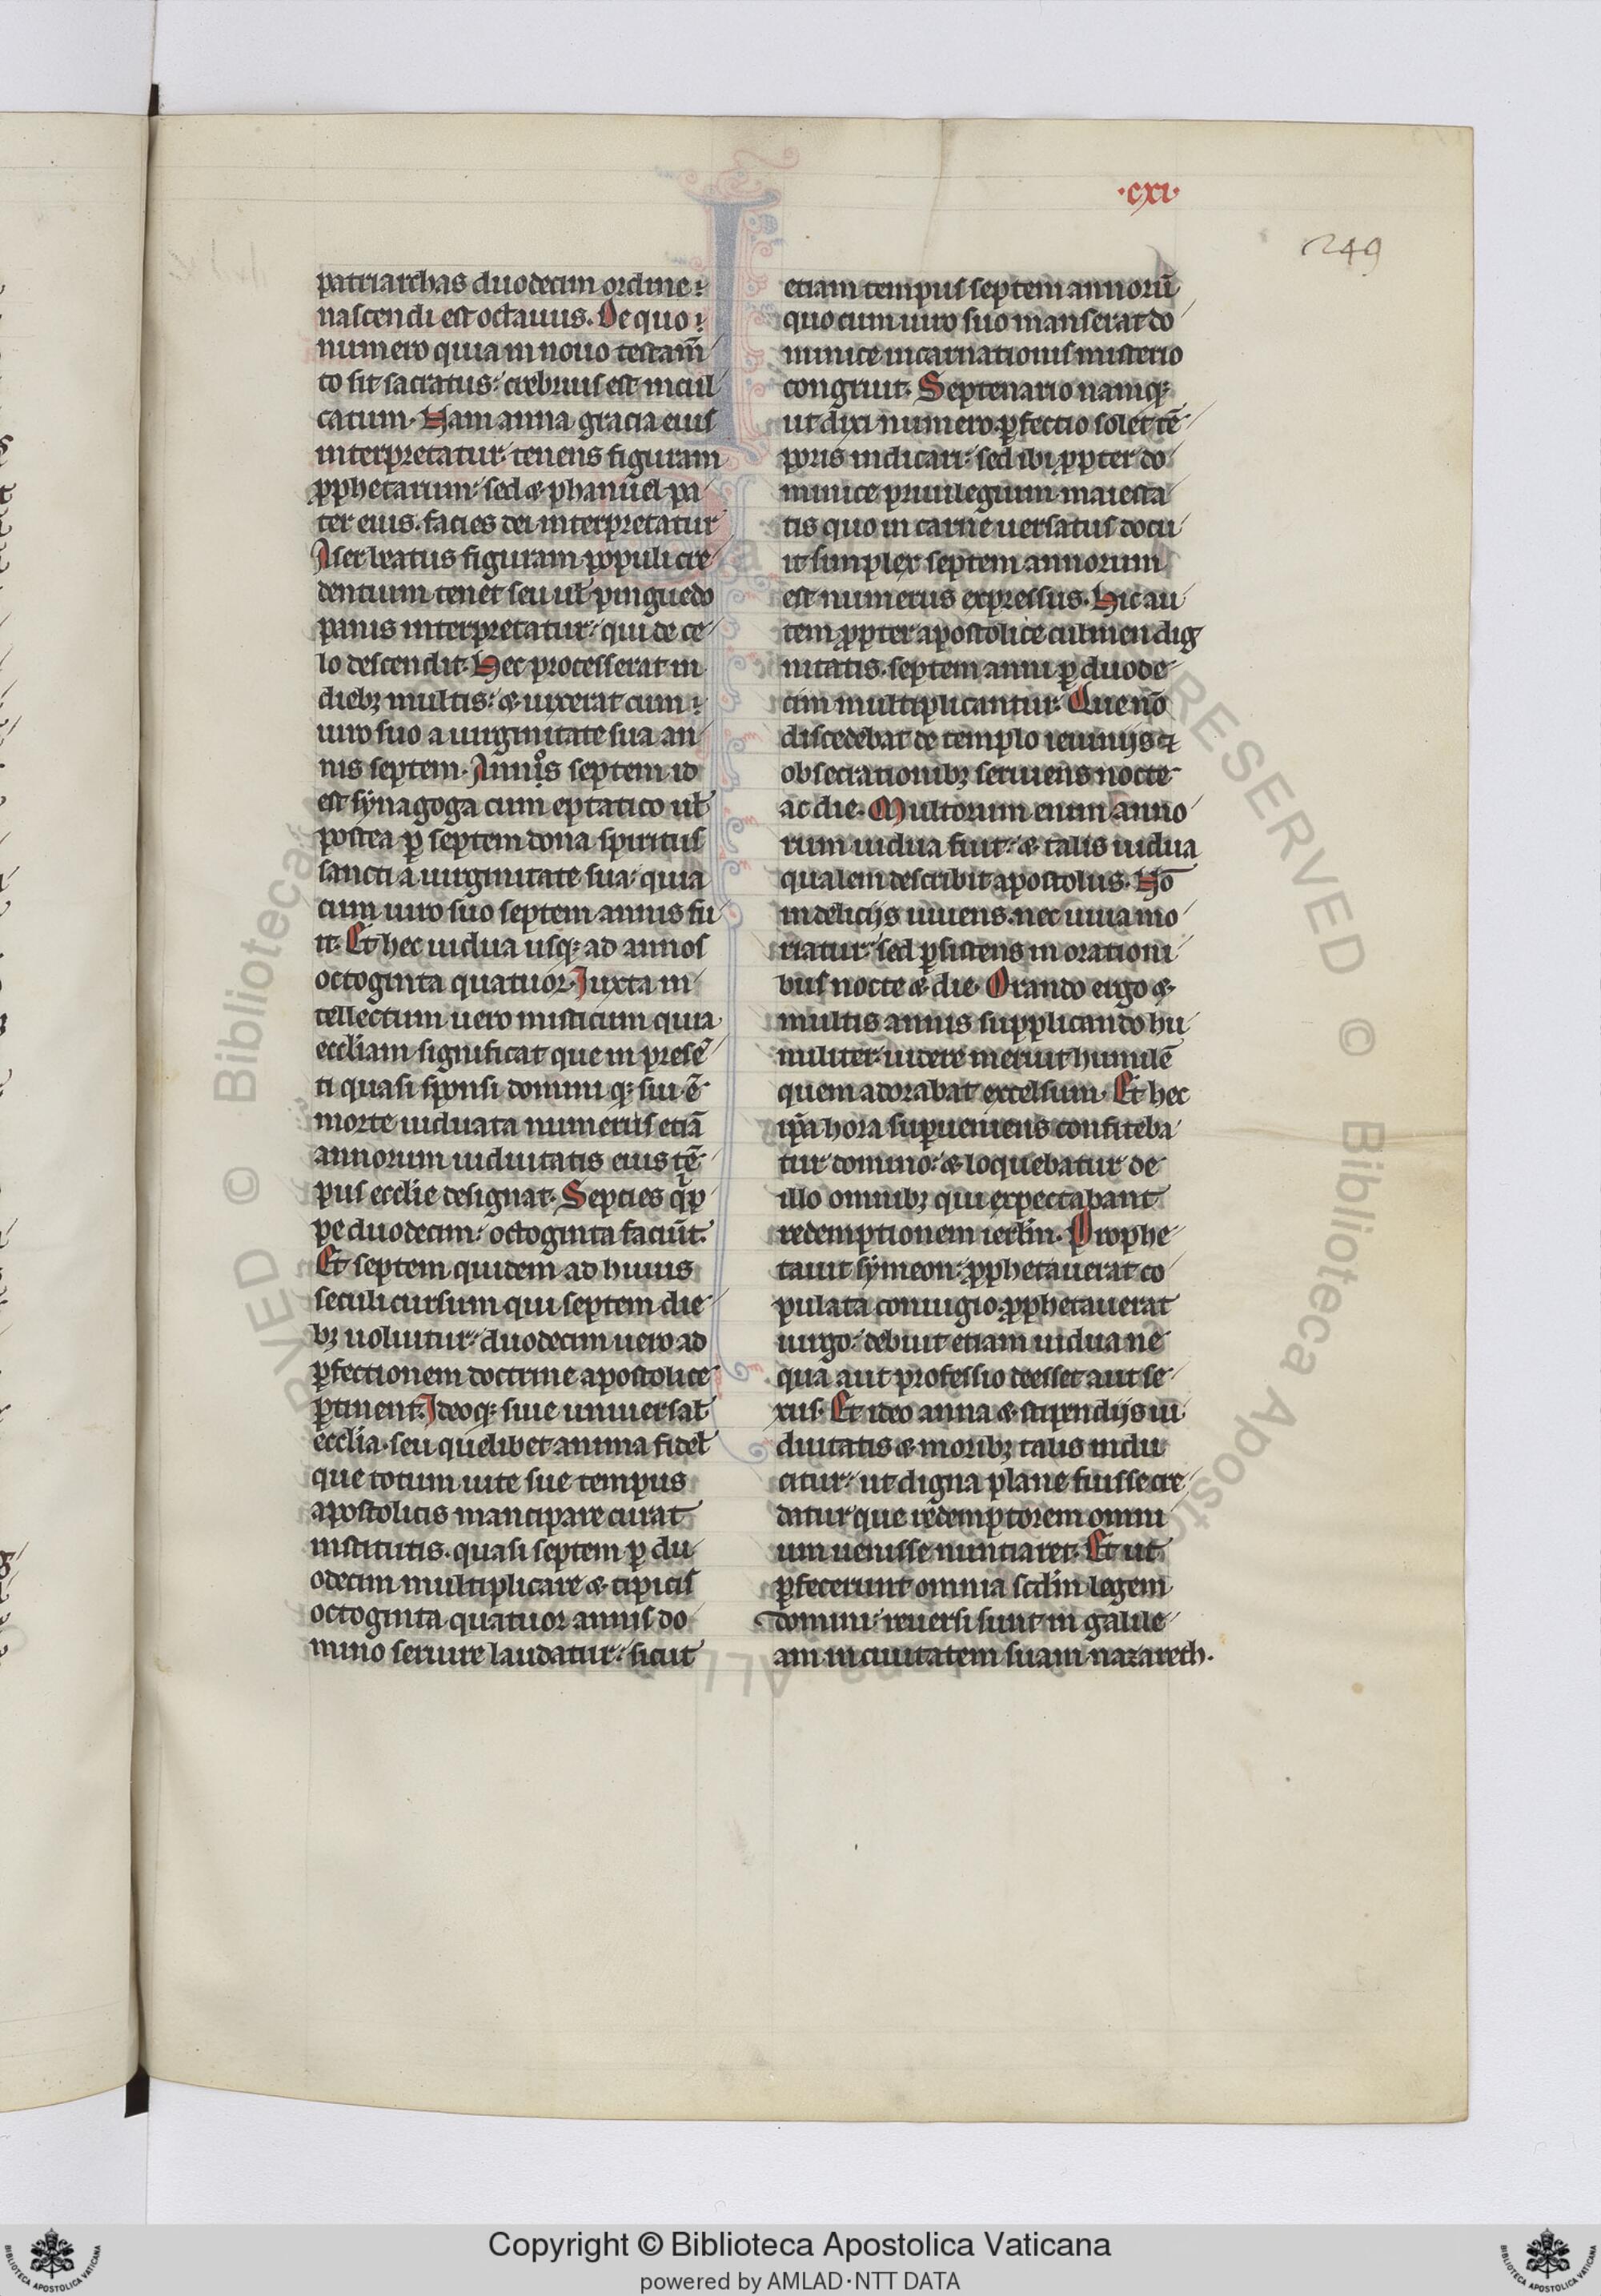 ·cxi·
249
patriarchas duodecim ordine
nascendi est octauus. De quo
numero quia in nouo testam̄
to sit sacratus: crebrius est incul
catum. Nam anna gracia eius
interpretatur: tenens figuram
ꝓphetarum: sed & phanuel pa
ter eius. facies dei interpretatur
Aser beatus figuram populi cre
dentium tenet seu ul̄ pinguedo
panis interpretatur: qui de ce
lo descendit. Hec processerat in
diebꝫ multis: & uixerat cum
uiro suo a uirginitate sua an
nis septem. Annis septem id
est synagoga cum eptatico ul̄
postea ꝑ septem dona spiritus
sancti a uirginitate sua: quia
cum uiro suo septem annis fu
it. Et hec uidua usqꝫ ad annos
octoginta quatuor. Iuxta in
tellectum uero misticum quia
eccl̄iam significat que in presē
ti quasi sponsi domini qꝫ sui ē
morte uiduata numerus etiā
annorum uiduitatis eius tē
pus eccl̄ie designat. Septies qͥp
pe duodecim: octoginta faciūt.
Et septem quidem ad huius
seculi cursum qui septem die
bꝫ uoluitur: duodecim uero ad
ꝑfectionem doctrine apostolice
ꝑtinent. Ideoqꝫ siue uniuersal̄
eccl̄ia. seu quelibet anima fidel̄
que totum uite sue tempus
apostolicis mancipare curat
institutis. quasi septem ꝑ du
odecim multiplicare & tipicis
octoginta quatuor annis do
mino seruire laudatur: sicut
etiam tempus septem annorū
quo cum uiro suo manserat do
minice incarnationis misterio
congruit. Septenario namqꝫ
ut dixi numero ꝑfectio solet tē
poris indicari: sed ibi ꝓpter do
minice priuilegium maiesta
tis quo in carne uersatus docu
it simplex septem annorum
est numerus expressus. Hic au
tem ꝓpter apostolice culmen dig
nitatis. septem anni ꝑ duode
cim multiplicantur. Que nō
discedebat de templo ieiunijs &
obsecrationibꝫ seruiens nocte
ac die. Multorum enim anno
rum uidua fuit: & talis uidua
qualem describit apostolus. Nō
in delicijs uiuens. nec uiua mo
riatur: sed ꝑsistens in orationi
bus nocte & die. Orando ergo &
multis annis supplicando hu
militer: uidere meruit humilē
quem adorabat excelsum. Et hec
ip̄a hora suꝑueniens confiteba
tur domino: & loquebatur de
illo omnibꝫ qui expectabant
redemptionem ierl̄m. Prophe
tauit symeon: ꝓphetauerat co
pulata coniugio: ꝓphetauerat
uirgo: debuit etiam uidua ne
qua aut professio deesset aut se
xus. Et ideo anna & stipendijs ui
duitatis & moribꝫ talis indu
citur: ut digna plane fuisse cre
datur que redemptorem omni
um uenisse nuntiaret. Et ut
ꝑfecerunt omnia scdm̄ legem
domini: reuersi sunt in galile
am in ciuitatem suam nazareth.
RVED © Biblioteca
RESERVED © Biblioteca Aposto
ALL
Copyright © Biblioteca Apostolica Vaticana
powered by AMLAD·NTT DATA
BIBLIOTECA APOSTOLICA VATICANA
BIBLIOTECA APOSTOLICA VATICANA